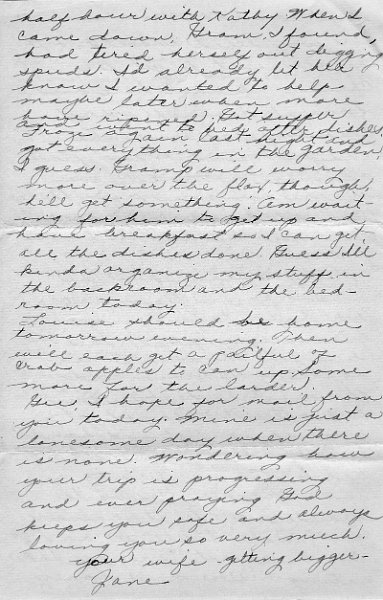 half hour with Kathy. When I
came down, Gram, I found,
had tired herself out digging
spuds. I'd already let her
know I wanted to help
maybe later when more
have ripened. Got supper
and went to bed after dishes.
Froze again last night and
got everything in the garden,
I guess. Gramp will worry
more over the flax, though,
he'll get something. Am wait-
ing for him to get up and
have breakfast so I can get
all the dishes done. Guess I'll
kinda organize my stuff in
the backroom and the bed-
room today.
Louise should be home
tomorrow evening. Then
we'll each get a pailful of
crab apples to can up. Some
more for the larder.
Gee, I hope for mail from
you today. Mine is just a
lonesome day when there
is none. Wondering how
your trip is progressing
and ever praying God
keeps you safe and always
loving you so very much.
your wife getting bigger-
Jane